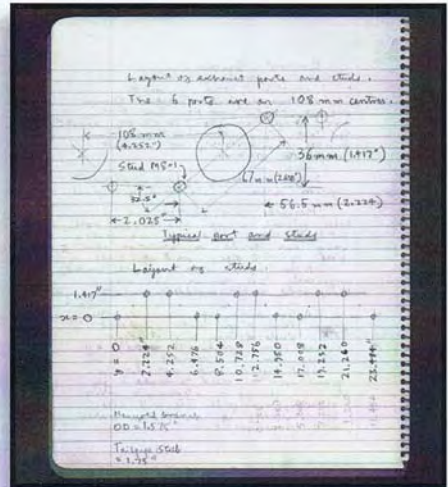 Layout of exhaust ports and studs.
The 6 ports are on 108 mm centres.
108 mm
(4.252")
Stud M8×1
36mm (1.417")
67mm (2.638")
32.5°
2.025"
56.5 mm (2.224)
Typical port and studs
Layout of studs.
1.417"
x=0
y = 0
2.224"
4.252
6.476
8.504
10.728
12.756
14.980
17.008
19.232
21.260
23.484"
Manifold
OD = 1.575"
Tailpipe Stub
= 1.75"